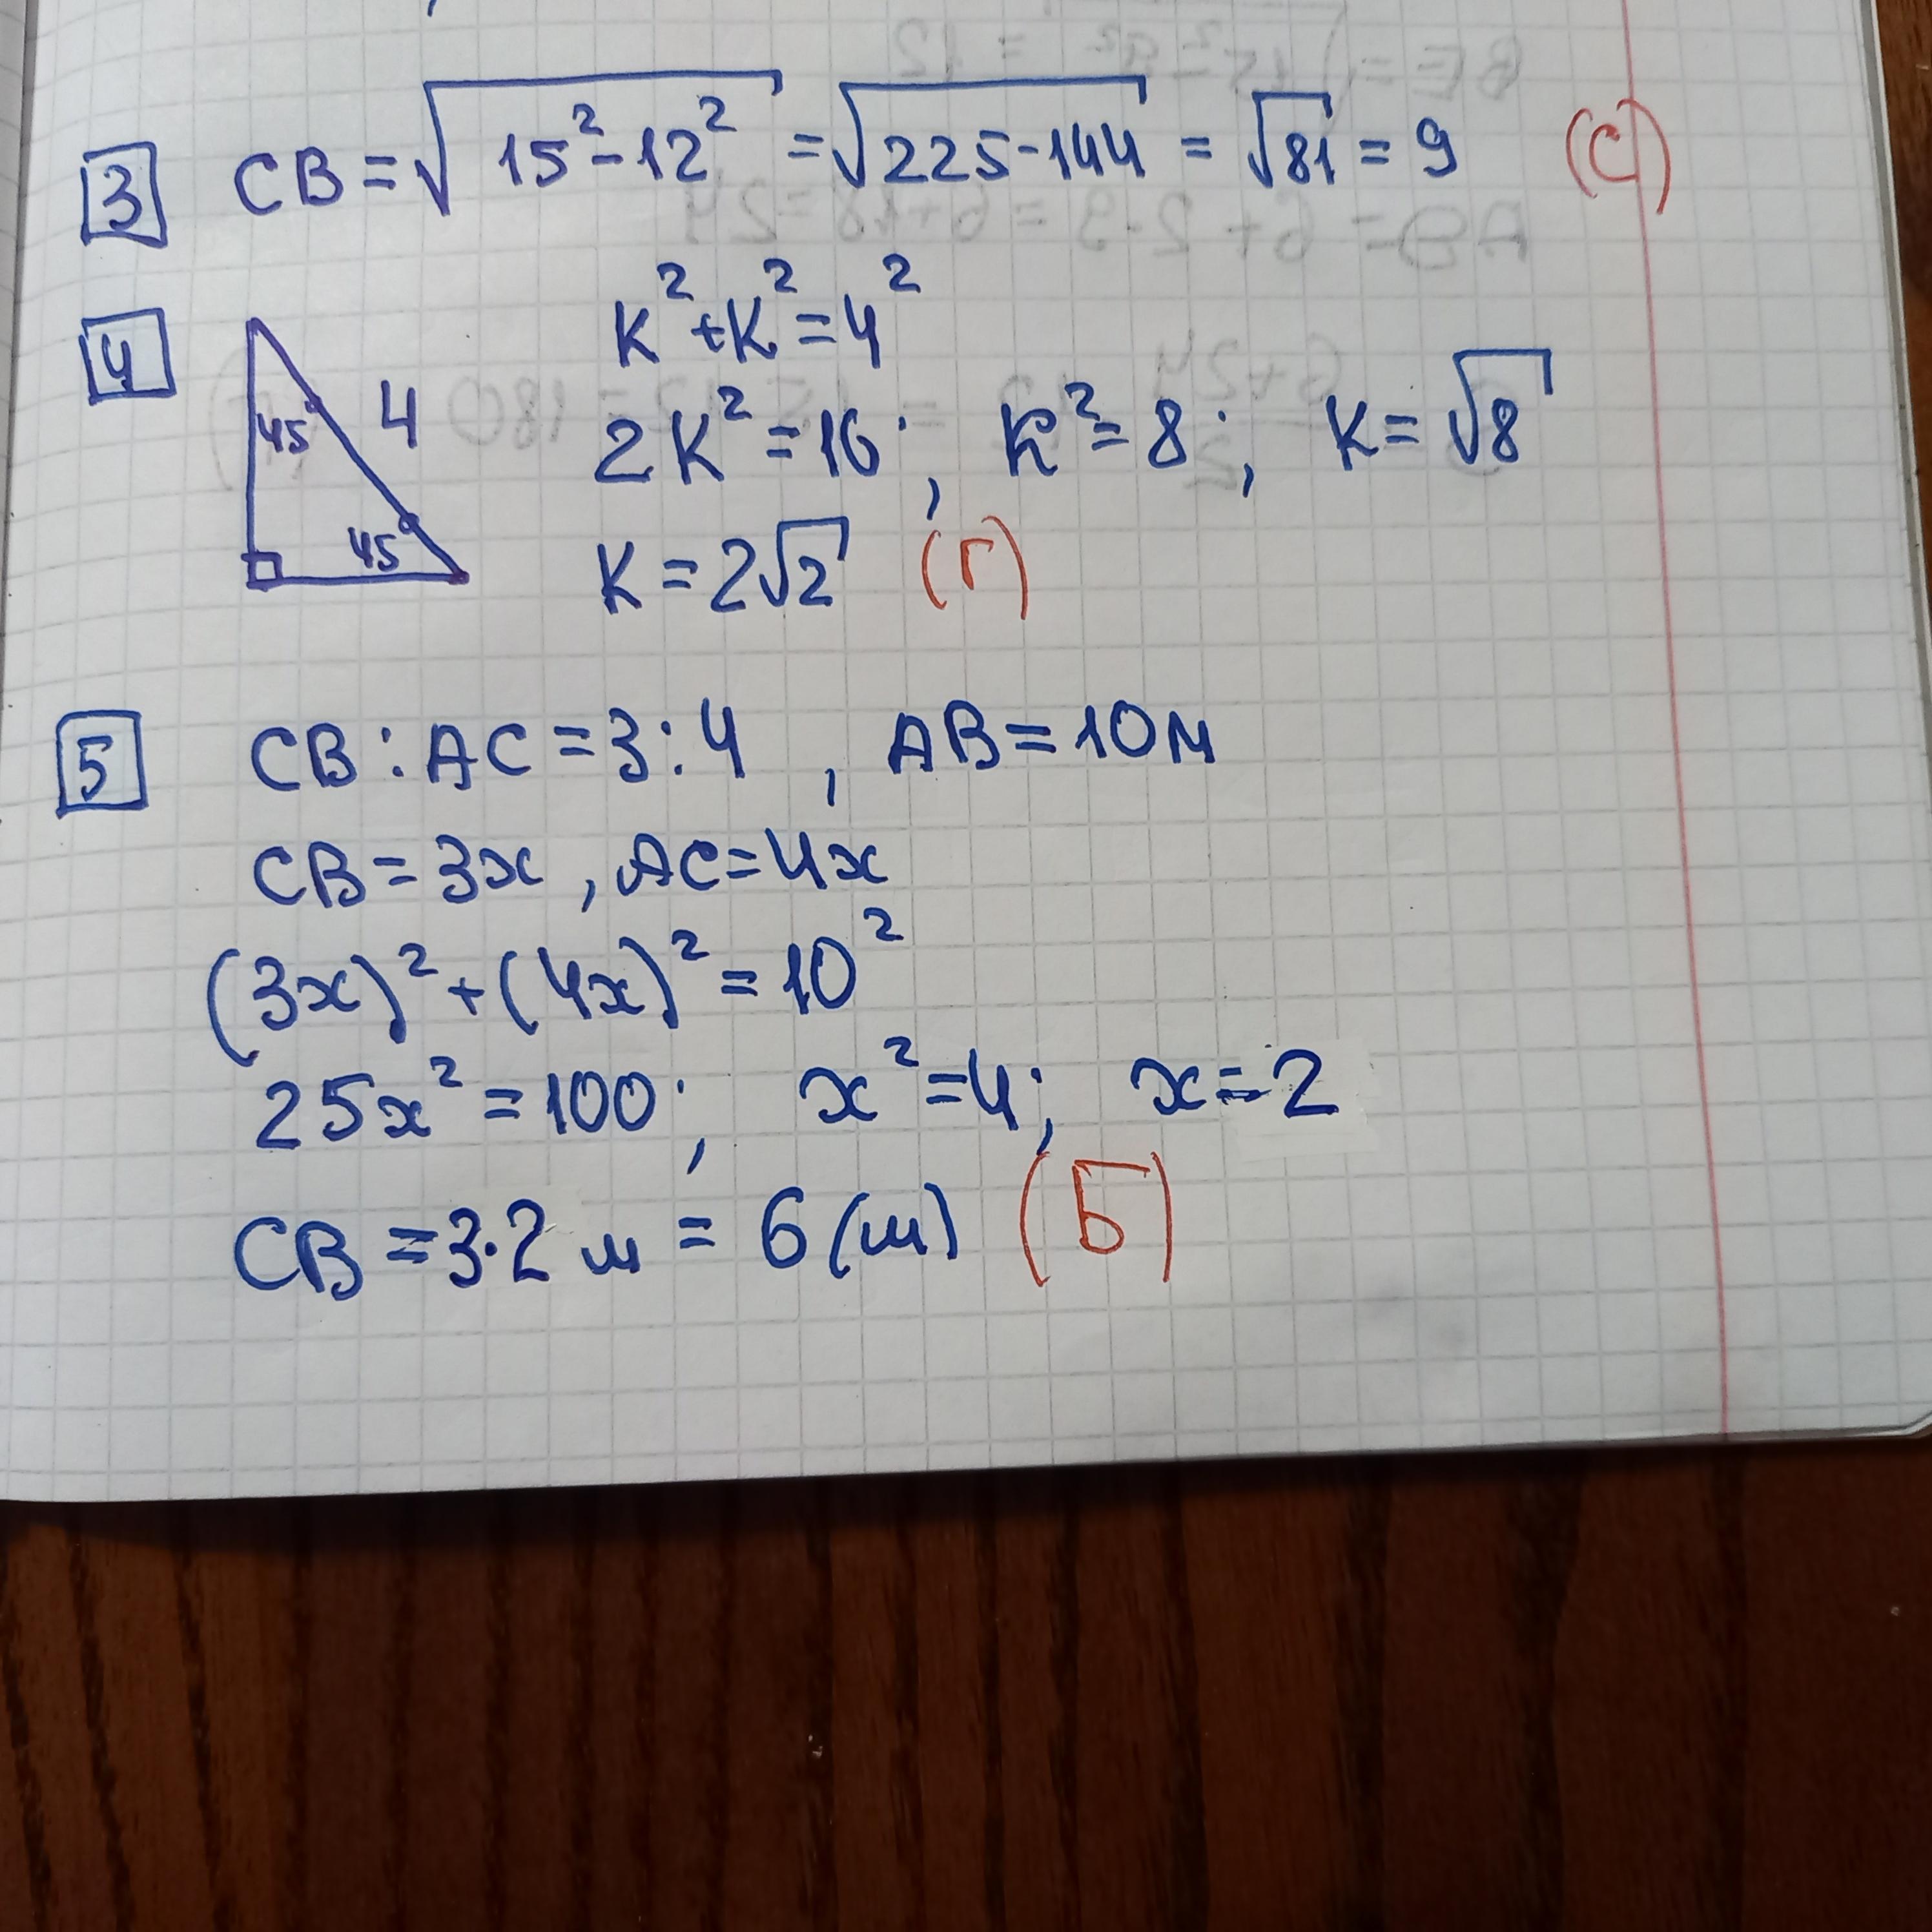 3 CB = √15² - 12² = √225 - 144 = √81 = 9 (C)
4 45 45 4
K² + K² = 4²
2K² = 16; K² = 8; K = √8
K = 2√2 (Г)
5 CB : AC = 3 : 4, AB = 10м
CB = 3x, AC = 4x
(3x)² + (4x)² = 10²
25x² = 100; x² = 4; x = 2
CB = 3·2 м = 6 (м) (Б)